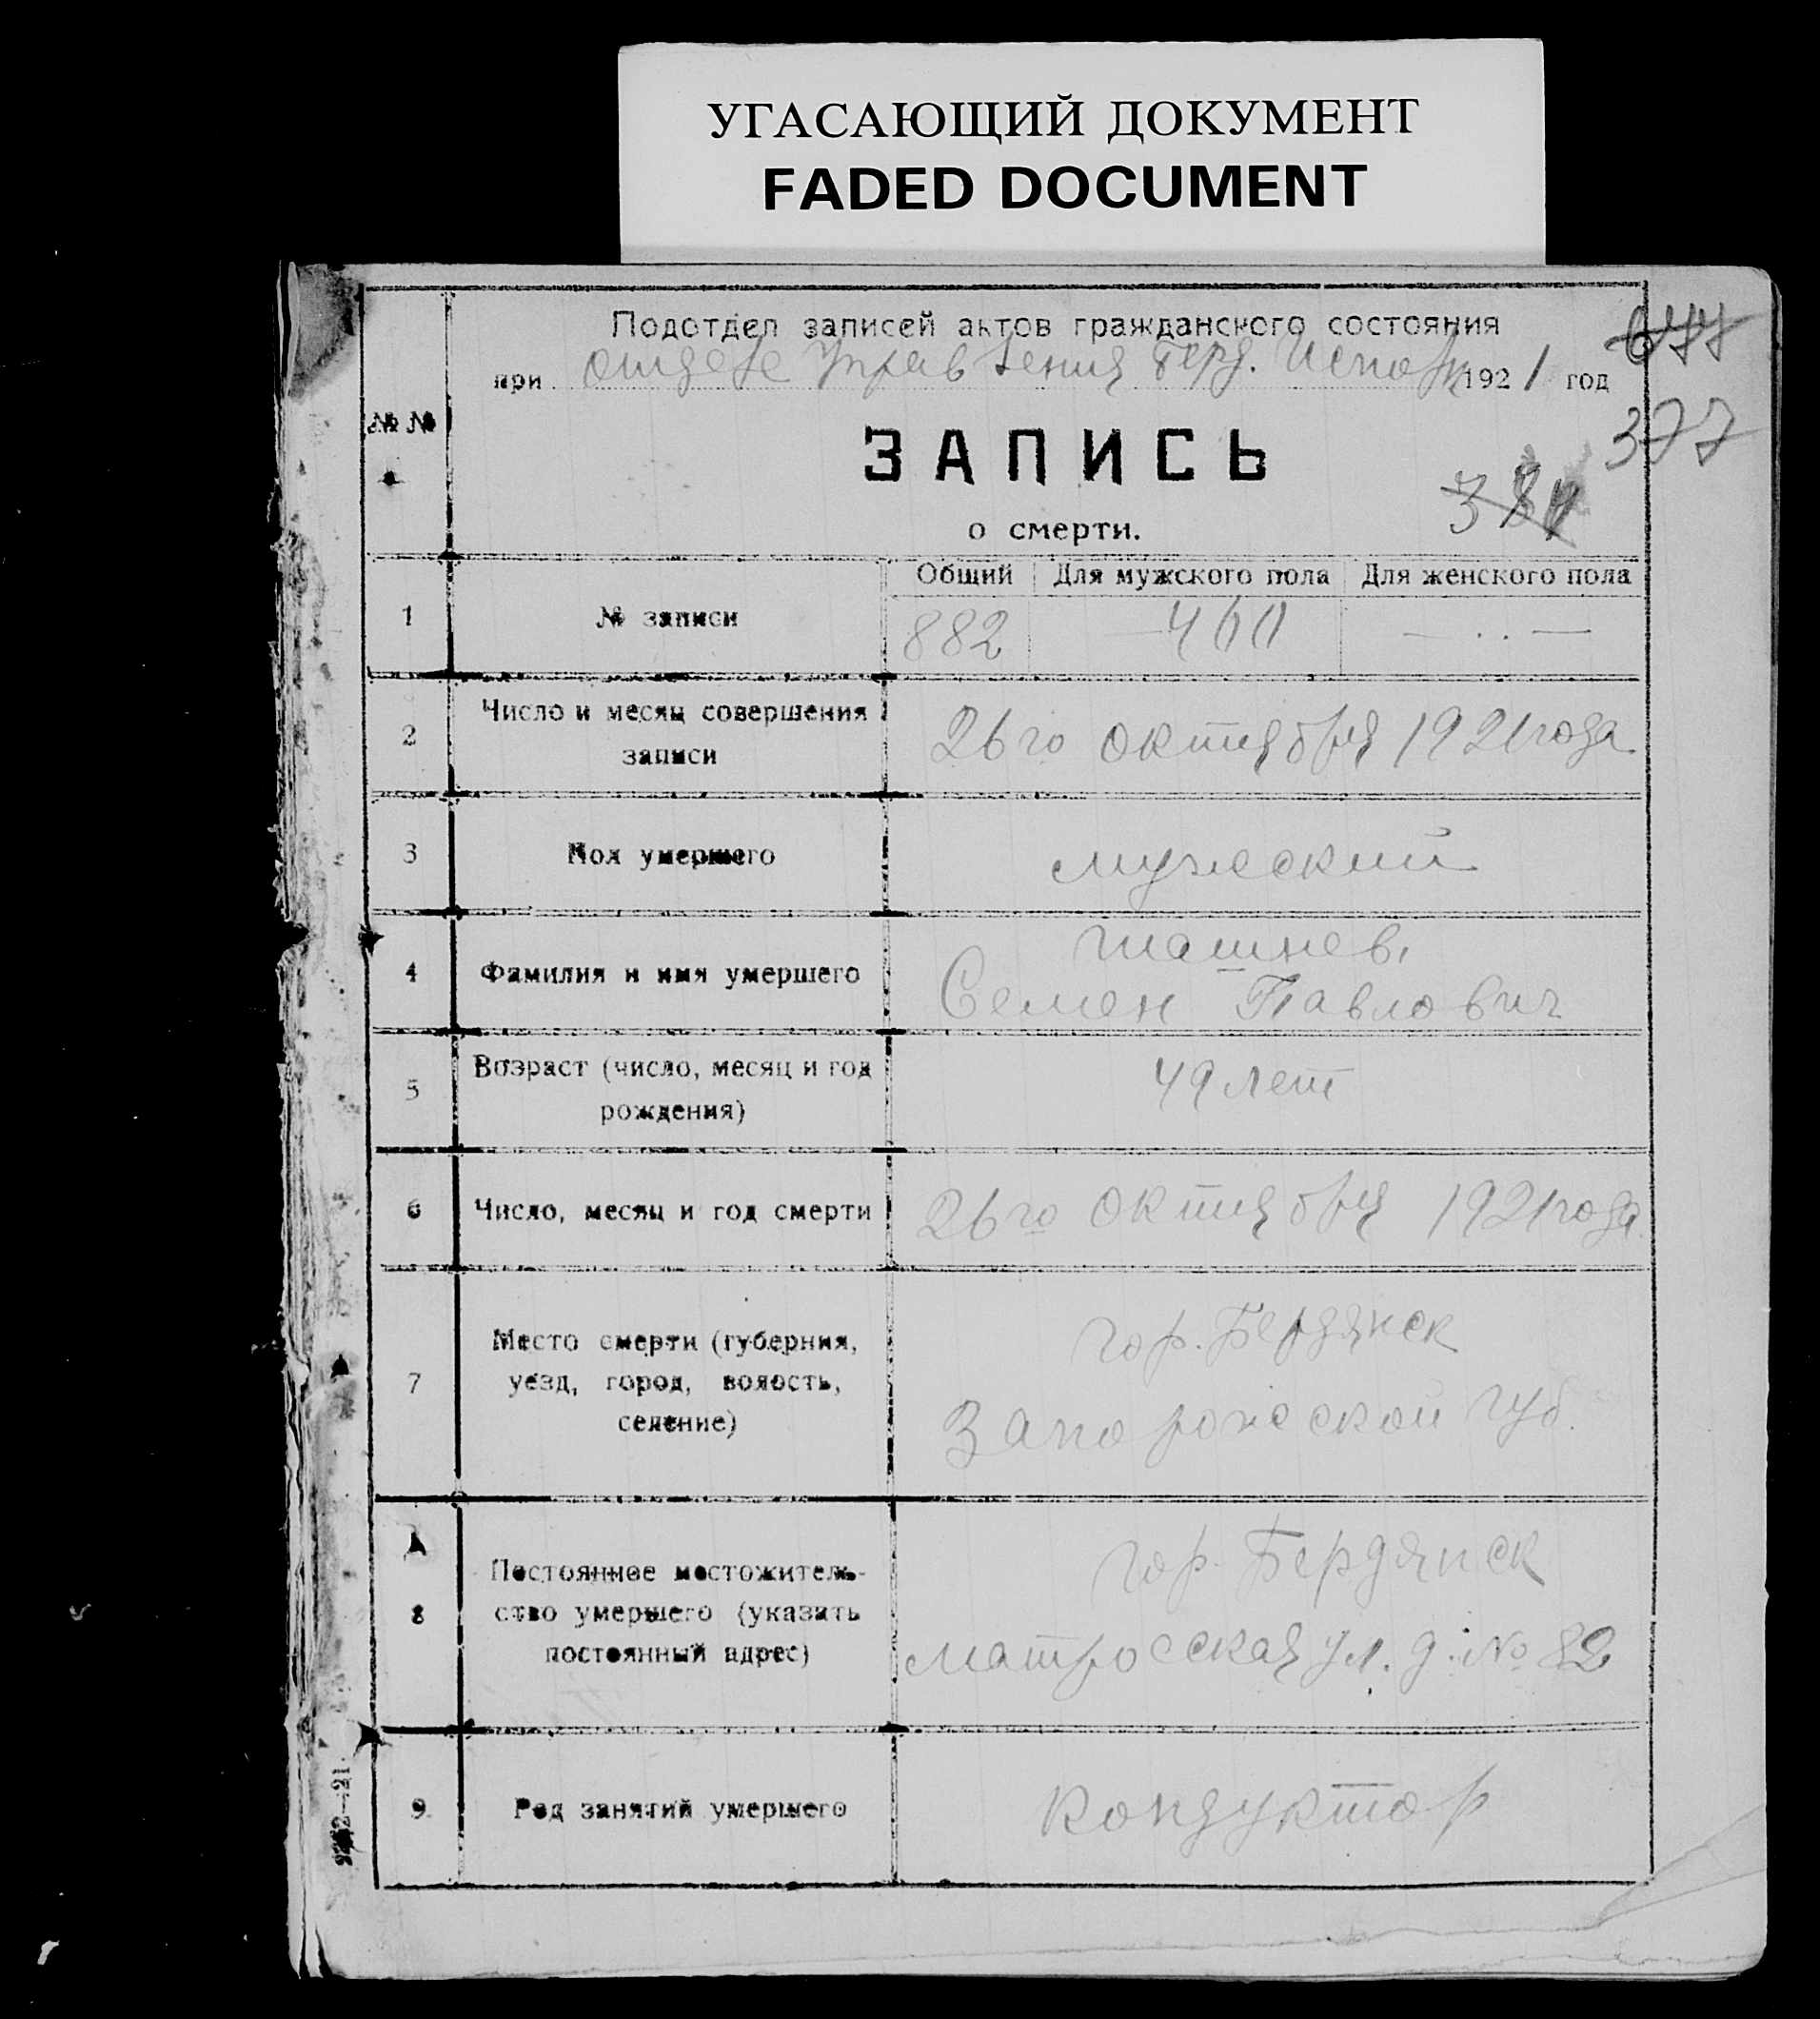 УГАСАЮЩИЙ ДОКУМЕНТ
FADED DOCUMENT
Подотдел записей актов гражданского состояния
при отделе Управления Берд. Исполк 1921 год
677
377
№ №
ЗАПИСЬ
о смерти.
Общий Для мужского пола Для женского пола
1 № записи 882 — 460 — .. —
2 Число и месяц совершения
записи
26го октября 1921 года
3 Пол умершего мужеский
4 Фамилия и имя умершего
Семен Павлович
5 Возраст (число, месяц и год
рождения)
49 лет
6 Число, месяц и год смерти 26го октября 1921 года
7 Место смерти (губерния,
уезд, город, волость,
селение)
гор. Бердянск
Запорожеской губ.
8 Постоянное местожитель-
ство умершего (указать
постоянный адрес)
гор. Бердянск
Матросская ул. д. № 82
9. Род занятий умершего кондуктор